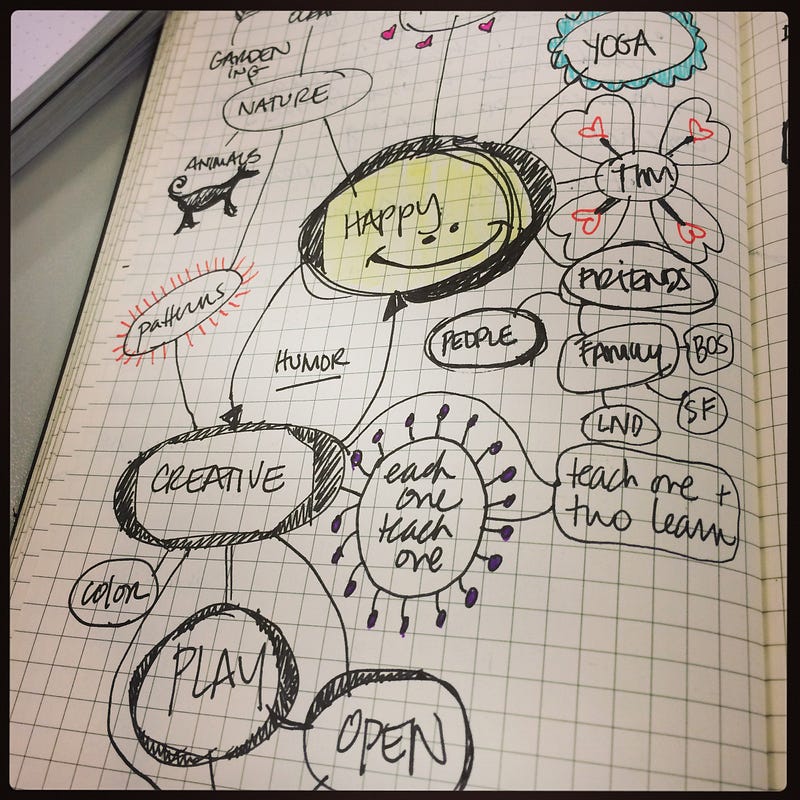 GARDEN
ING
NATURE
YOGA
ANIMALS
HAPPY
FRIENDS
patterns
PEOPLE
FAMILY
BOS
HUMOR
SF
LND
CREATIVE
each
one
teach
one
teach one +
two learn
COLOR
PLAY
OPEN